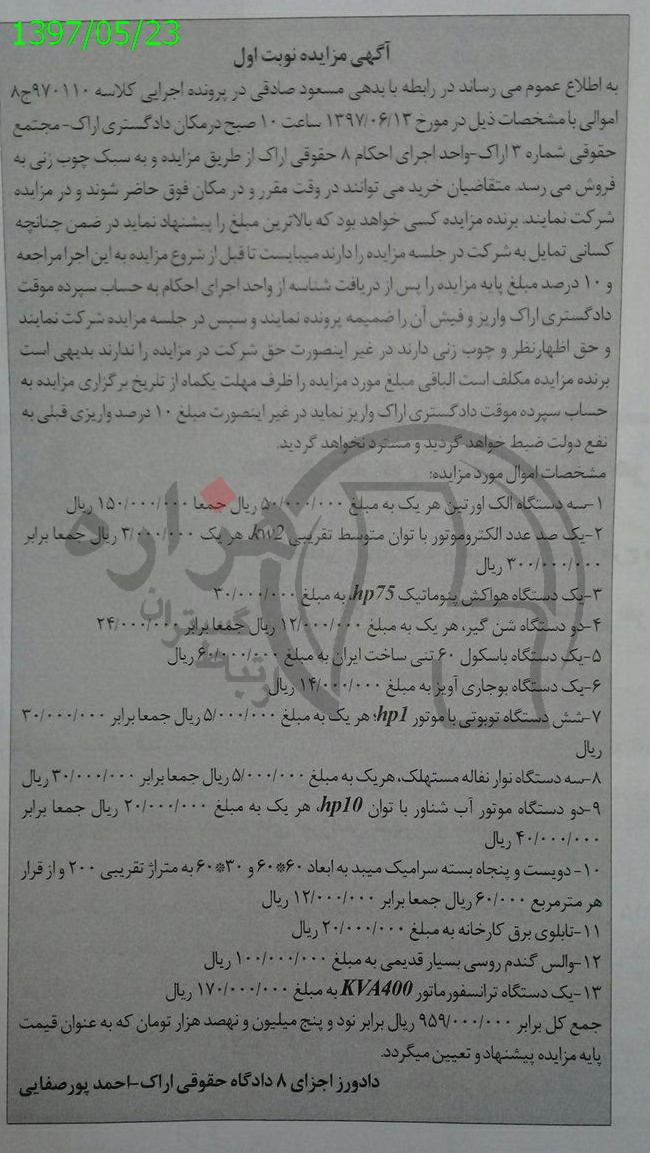 1397/05/23
آگهی مزایده نوبت اول
به اطلاع عموم می رساند در رابطه با بدهی مسعود صادقی در پرونده اجرایی کلاسه ۹۷۰۱۱۰ج۸
اموالی با مشخصات ذیل در مورخ ۱۳۹۷/۰۶/۱۳ ساعت ۱۰ صبح در مکان دادگستری اراک- مجتمع
حقوقی شماره ۳ اراک-واحد اجرای احکام ۸ حقوقی اراک از طریق مزایده و به سبک چوب زنی به
فروش می رسد. متقاضیان خرید می توانند در وقت مقرر و در مکان فوق حاضر شوند و در مزایده
شرکت نمایند. برنده مزایده کسی خواهد بود که بالاترین مبلغ را پیشنهاد نماید در ضمن چنانچه
کسانی تمایل به شرکت در جلسه مزایده را دارند میبایست تا قبل از شروع مزایده به این اجرا مراجعه
و ۱۰ درصد مبلغ پایه مزایده را پس از دریافت شناسه از واحد اجرای احکام به حساب سپرده موقت
دادگستری اراک واریز و فیش آن را ضمیمه پرونده نمایند و سپس در جلسه مزایده شرکت نمایند
و حق اظهارنظر و چوب زنی دارند در غیر اینصورت حق شرکت در مزایده را ندارند بدیهی است
برنده مزایده مکلف است الباقی مبلغ مورد مزایده را ظرف مهلت یکماه از تاریخ برگزاری مزایده به
حساب سپرده موقت دادگستری اراک واریز نماید در غیر اینصورت مبلغ ۱۰ درصد واریزی قبلی به
نفع دولت ضبط خواهد گردید و مسترد نخواهد گردید.
مشخصات اموال مورد مزایده:
۱-سه دستگاه الک اورتین هر یک به مبلغ ۵۰/۰۰۰/۰۰۰ ریال جمعا ۱۵۰/۰۰۰/۰۰۰ ریال
۲-یک صد عدد الکتروموتور با توان متوسط تقریبی kw2، هر یک ۳/۰۰۰/۰۰۰ ریال جمعا برابر
۳۰۰/۰۰۰/۰۰۰ ریال
۳-یک دستگاه هواکش پنوماتیک hp75، به مبلغ ۳۰/۰۰۰/۰۰۰
۴-دو دستگاه شن گیر، هر یک به مبلغ ۱۲/۰۰۰/۰۰۰ ریال جمعا برابر ۲۴/۰۰۰/۰۰۰
۵-یک دستگاه باسکول ۶۰ تنی ساخت ایران به مبلغ ۶۰/۰۰۰/۰۰۰ ریال
۶-یک دستگاه بوجاری آویز به مبلغ ۱۴/۰۰۰/۰۰۰ ریال
۷-شش دستگاه توبوتی با موتور hp1؛ هر یک به مبلغ ۵/۰۰۰/۰۰۰ ریال جمعا برابر ۳۰/۰۰۰/۰۰۰
ریال
۸-سه دستگاه نوار نفاله مستهلک، هر یک به مبلغ ۵/۰۰۰/۰۰۰ ریال جمعا برابر ۳۰/۰۰۰/۰۰۰ ریال
۹-دو دستگاه موتور آب شناور با توان hp10، هر یک به مبلغ ۲۰/۰۰۰/۰۰۰ ریال جمعا برابر
۴۰/۰۰۰/۰۰۰ ریال
۱۰- دویست و پنجاه بسته سرامیک میبد به ابعاد ۶۰*۶۰ و ۳۰*۶۰ به متراژ تقریبی ۲۰۰ و از قرار
هر مترمربع ۶۰/۰۰۰ ریال جمعا برابر ۱۲/۰۰۰/۰۰۰ ریال
۱۱-تابلوی برق کارخانه به مبلغ ۲۰/۰۰۰/۰۰۰ ریال
۱۲-والس گندم روسی بسیار قدیمی به مبلغ ۱۰۰/۰۰۰/۰۰۰ ریال
۱۳-یک دستگاه ترانسفورماتور KVA400 به مبلغ ۱۷۰/۰۰۰/۰۰۰ ریال
جمع کل برابر ۹۵۹/۰۰۰/۰۰۰ ریال برابر نود و پنج میلیون و نهصد هزار تومان که به عنوان قیمت
پایه مزایده پیشنهاد و تعیین میگردد.
دادورز اجرای ۸ دادگاه حقوقی اراک-احمد پورصفایی
هزاره